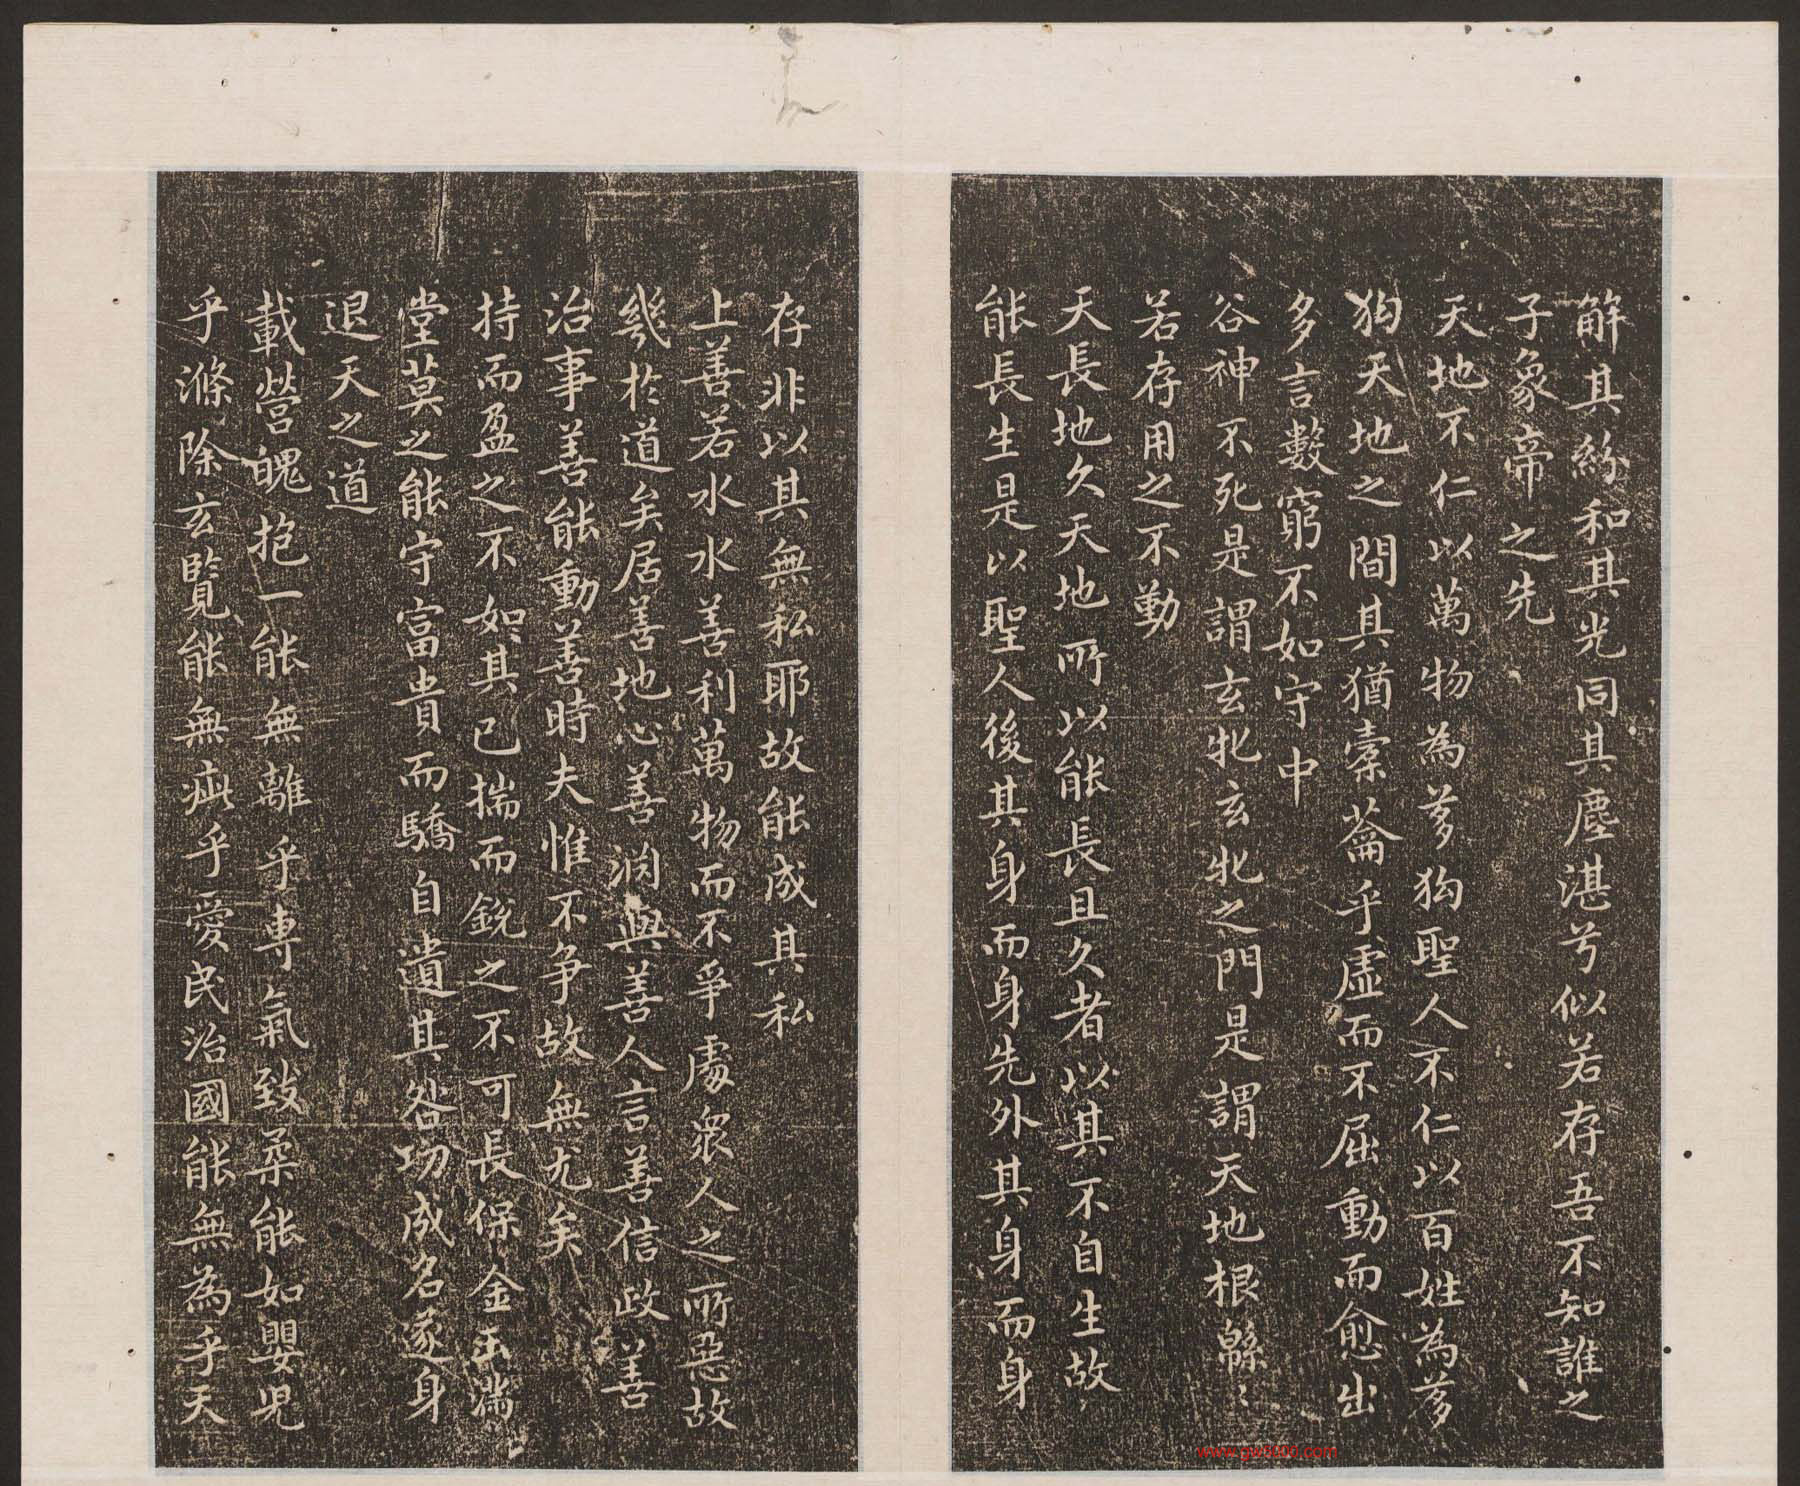 解其紛和其光同其塵湛兮似若存吾不知誰之
子象帝之先
天地不仁以萬物為芻狗聖人不仁以百姓為芻
狗天地之間其猶橐蘥乎虛而不屈動而愈出
多言數窮不如守中
谷神不死是謂玄牝玄牝之門是謂天地根緜〻
若存用之不勤
天長地久天地所以能長且久者以其不自生故
能長生是以聖人後其身而身先外其身而身
存非以其無私耶故能成其私
上善若水水善利萬物而不爭處眾人之所惡故
幾於道矣居善地心善渕與善人言善信政善
治事善能動善時夫惟不爭故無尤矣
持而盈之不如其已揣而銳之不可長保金玉滿
堂莫之能守富貴而驕自遺其咎功成名遂身
退天之道
載營魄抱一能無離乎專氣致柔能如嬰兒
乎滌除玄覽能無疵乎愛民治國能無為乎天
www.gw8800.com